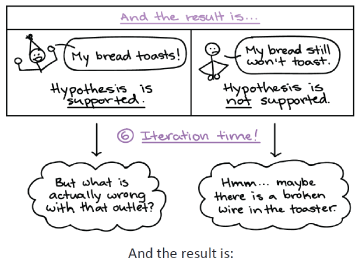 And the result is...
My bread toasts!
Hypothesis is
supported.
My bread still
won't toast.
Hypothesis is
not supported.
6 Iteration time!
But what is
actually wrong
with that outlet?
Hmm... maybe
there is a broken
wire in the toaster.
And the result is: